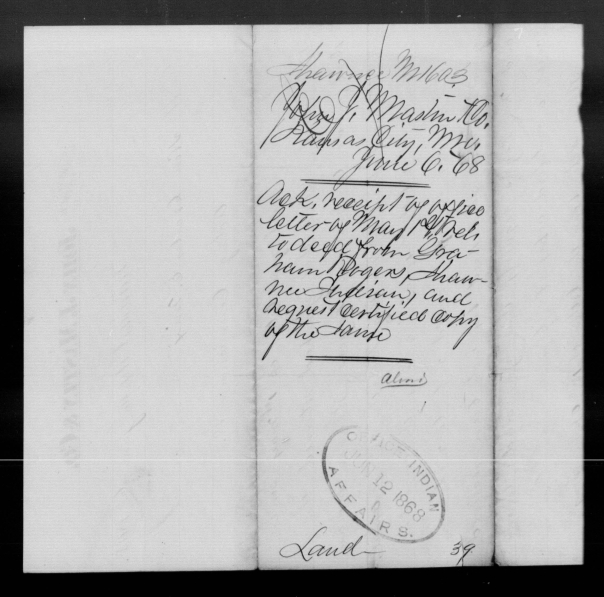 Shawnee M1603
John J. Mastin & Co.
Kansas City, Mo.
June 6. '68
Ack. receipt of office
letter of May 1st, rel:
to deed from Gra-
ham Rogers, Shaw-
nee Indian, and
request certified copy
of the same
OFFICE INDIAN
JUN 12 1868
AFFAIRS.
Land
39